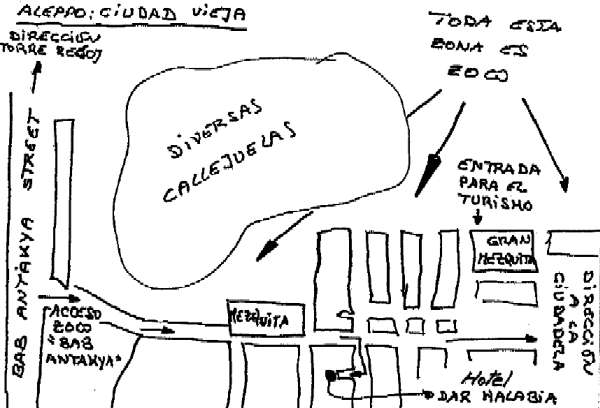 ALEPPO: CIUDAD VIEJA
DIRECCIÓN
TORRE RELOJ
TODA ESTA
ZONA ES
ZOCO
DIVERSAS
CALLEJUELAS
BAB ANTAKYA STREET
ENTRADA
PARA EL
TURISMO
GRAN
MEZQUITA
ACCESO
ZOCO
"BAB
ANTAKYA"
MEZQUITA
DIRECCIÓN
A LA
CIUDADELA
Hotel
DAR HALABIA